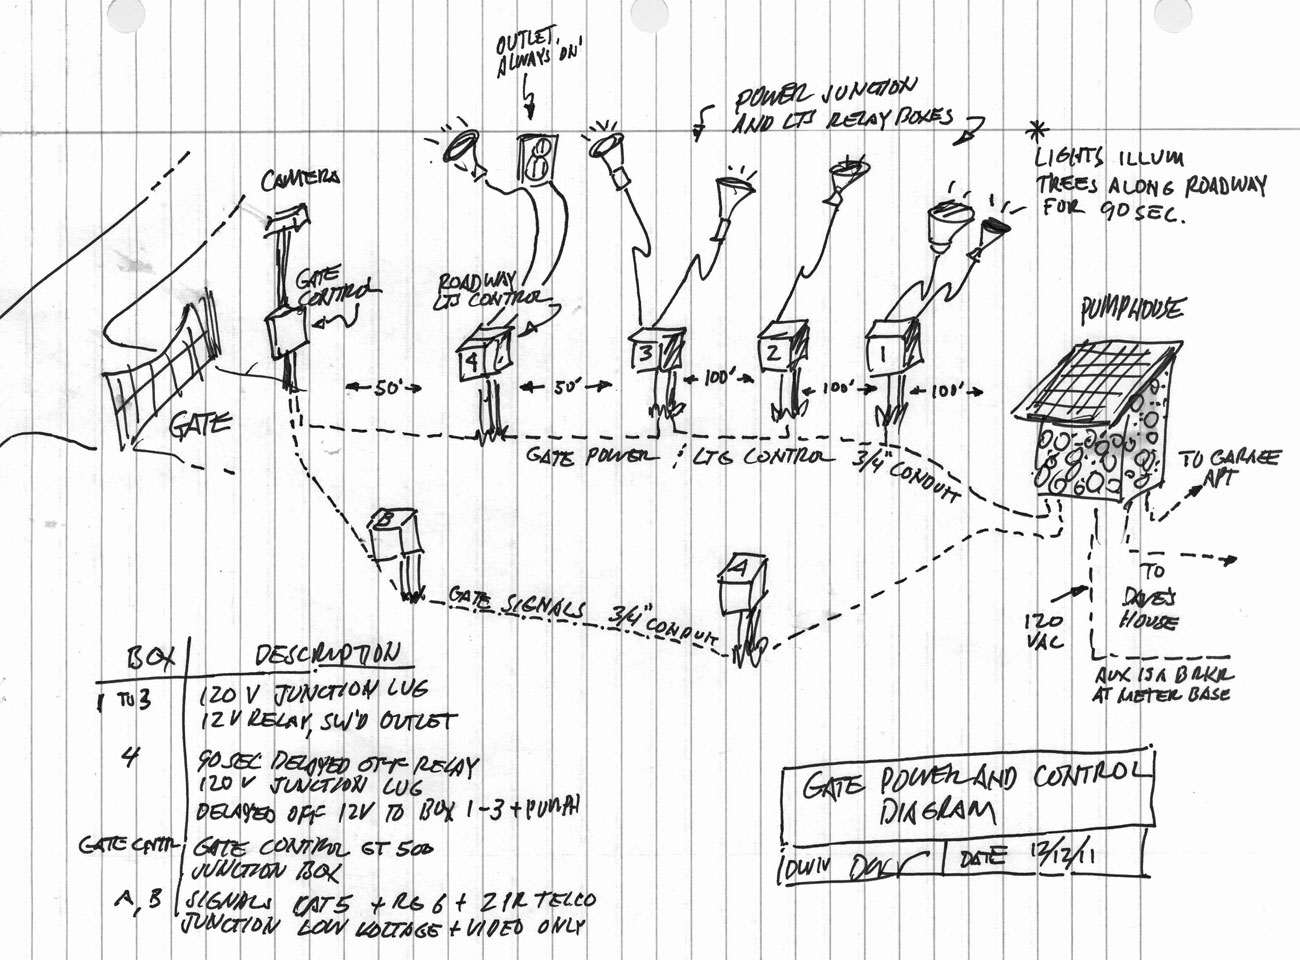 OUTLET,
ALWAYS 'ON'
POWER JUNCTION
AND LTS RELAY BOXES
*
LIGHTS ILLUM
TREES ALONG ROADWAY
FOR 90 SEC.
CAMERA
GATE
CONTROL
ROADWAY
LTS CONTROL
PUMPHOUSE
4
3
2
1
50'
50'
100'
100'
100'
GATE
GATE POWER / LTG CONTROL 3/4" CONDUIT
TO GARAGE
APT
B
A
GATE SIGNALS 3/4" CONDUIT
TO
DAVE'S
HOUSE
120
VAC
AUX 15A BRKR
AT METER BASE
BOX DESCRIPTION
1 TO 3 120 V JUNCTION LUG
12V RELAY, SW'D OUTLET
4 90 SEC DELAYED OFF RELAY
120 V JUNCTION LUG
DELAYED OFF 12V TO BOX 1-3 + PUMPH
GATE CNTRL GATE CONTROL GT 500
JUNCTION BOX
A, B SIGNALS CAT5 + RG6 + 2 PR TELCO
JUNCTION LOW VOLTAGE + VIDEO ONLY
GATE POWER AND CONTROL
DIAGRAM
DWN DATE 12/12/11